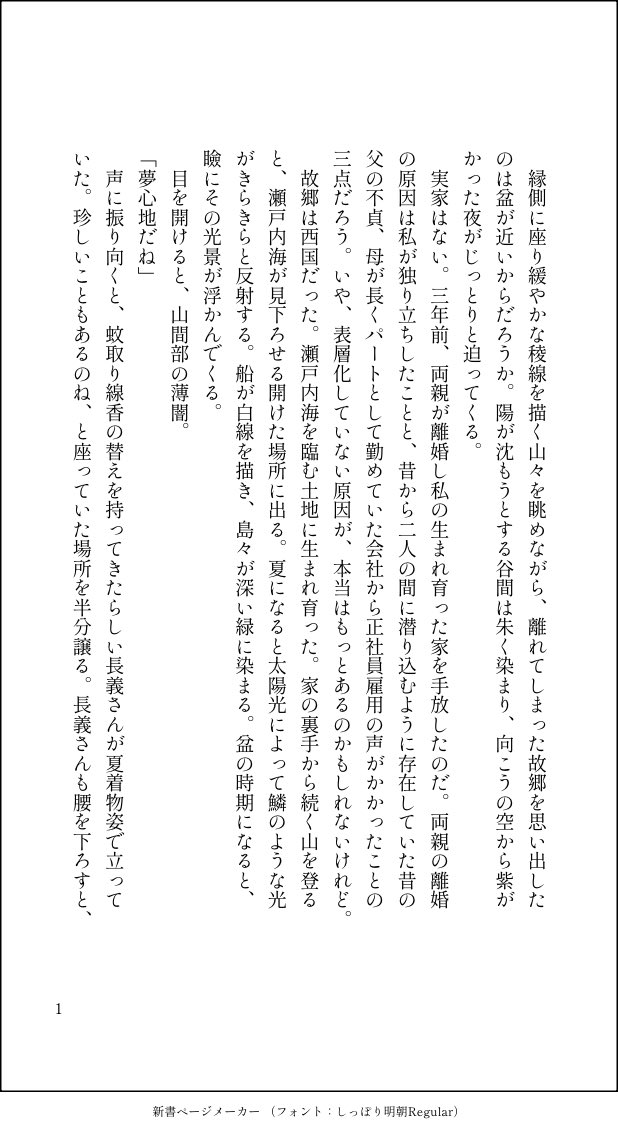 縁側に座り緩やかな稜線を描く山々を眺めながら、離れてしまった故郷を思い出した
のは盆が近いからだろうか。陽が沈もうとする谷間は朱く染まり、向こうの空から紫が
かった夜がじっとりと迫ってくる。
　実家はない。三年前、両親が離婚し私の生まれ育った家を手放したのだ。両親の離婚
の原因は私が独り立ちしたことと、昔から二人の間に潜り込むように存在していた昔の
父の不貞、母が長くパートとして勤めていた会社から正社員雇用の声がかかったことの
三点だろう。いや、表層化していない原因が、本当はもっとあるのかもしれないけれど。
　故郷は西国だった。瀬戸内海を臨む土地に生まれ育った。家の裏手から続く山を登る
と、瀬戸内海が見下ろせる開けた場所に出る。夏になると太陽光によって鱗のような光
がきらきらと反射する。船が白線を描き、島々が深い緑に染まる。盆の時期になると、
瞼にその光景が浮かんでくる。
　目を開けると、山間部の薄闇。
「夢心地だね」
　声に振り向くと、蚊取り線香の替えを持ってきたらしい長義さんが夏着物姿で立って
いた。珍しいこともあるのね、と座っていた場所を半分譲る。長義さんも腰を下ろすと、
1
新書ページメーカー （フォント：しっぽり明朝Regular）